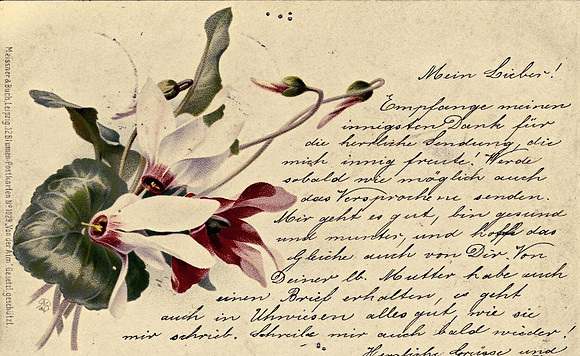 Meissner & Buch, Leipzig. 12 Blumen-Postkarten No 1029 „Von der Alm“. Gesetzl. geschützt.
Mein Lieber!
Empfange meinen
innigsten Dank für
die herrliche Sendung, die
mich innig freute! Werde
sobald wie möglich auch
das Versprochene senden.
Mir geht es gut, bin gesund
und munter, und hoffe das
Gleiche auch von Dir. Von
Deiner lb. Mutter habe auch
einen Brief erhalten, es geht
auch in Uhwiesen alles gut, wie sie
mir schrieb. Schreibe mir auch bald wieder!
Herzliche Grüsse und